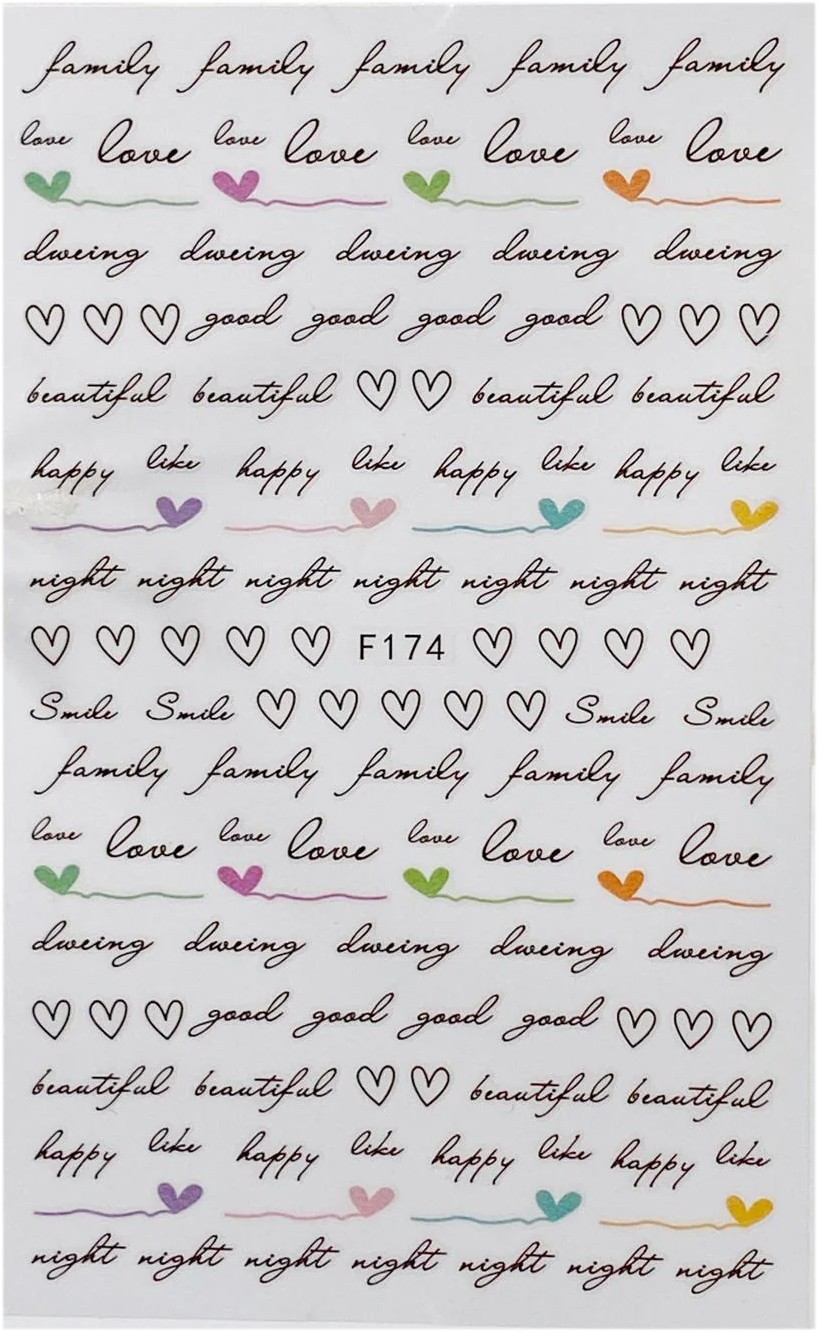 family family family family family
love love love love love love love love
dweing dweing dweing dweing dweing
good good good good
beautiful beautiful beautiful beautiful
happy like happy like happy like happy like
night night night night night night night
F174
Smile Smile Smile Smile
family family family family family
love love love love love love love love
dweing dweing dweing dweing dweing
good good good good
beautiful beautiful beautiful beautiful
happy like happy like happy like happy like
night night night night night night night